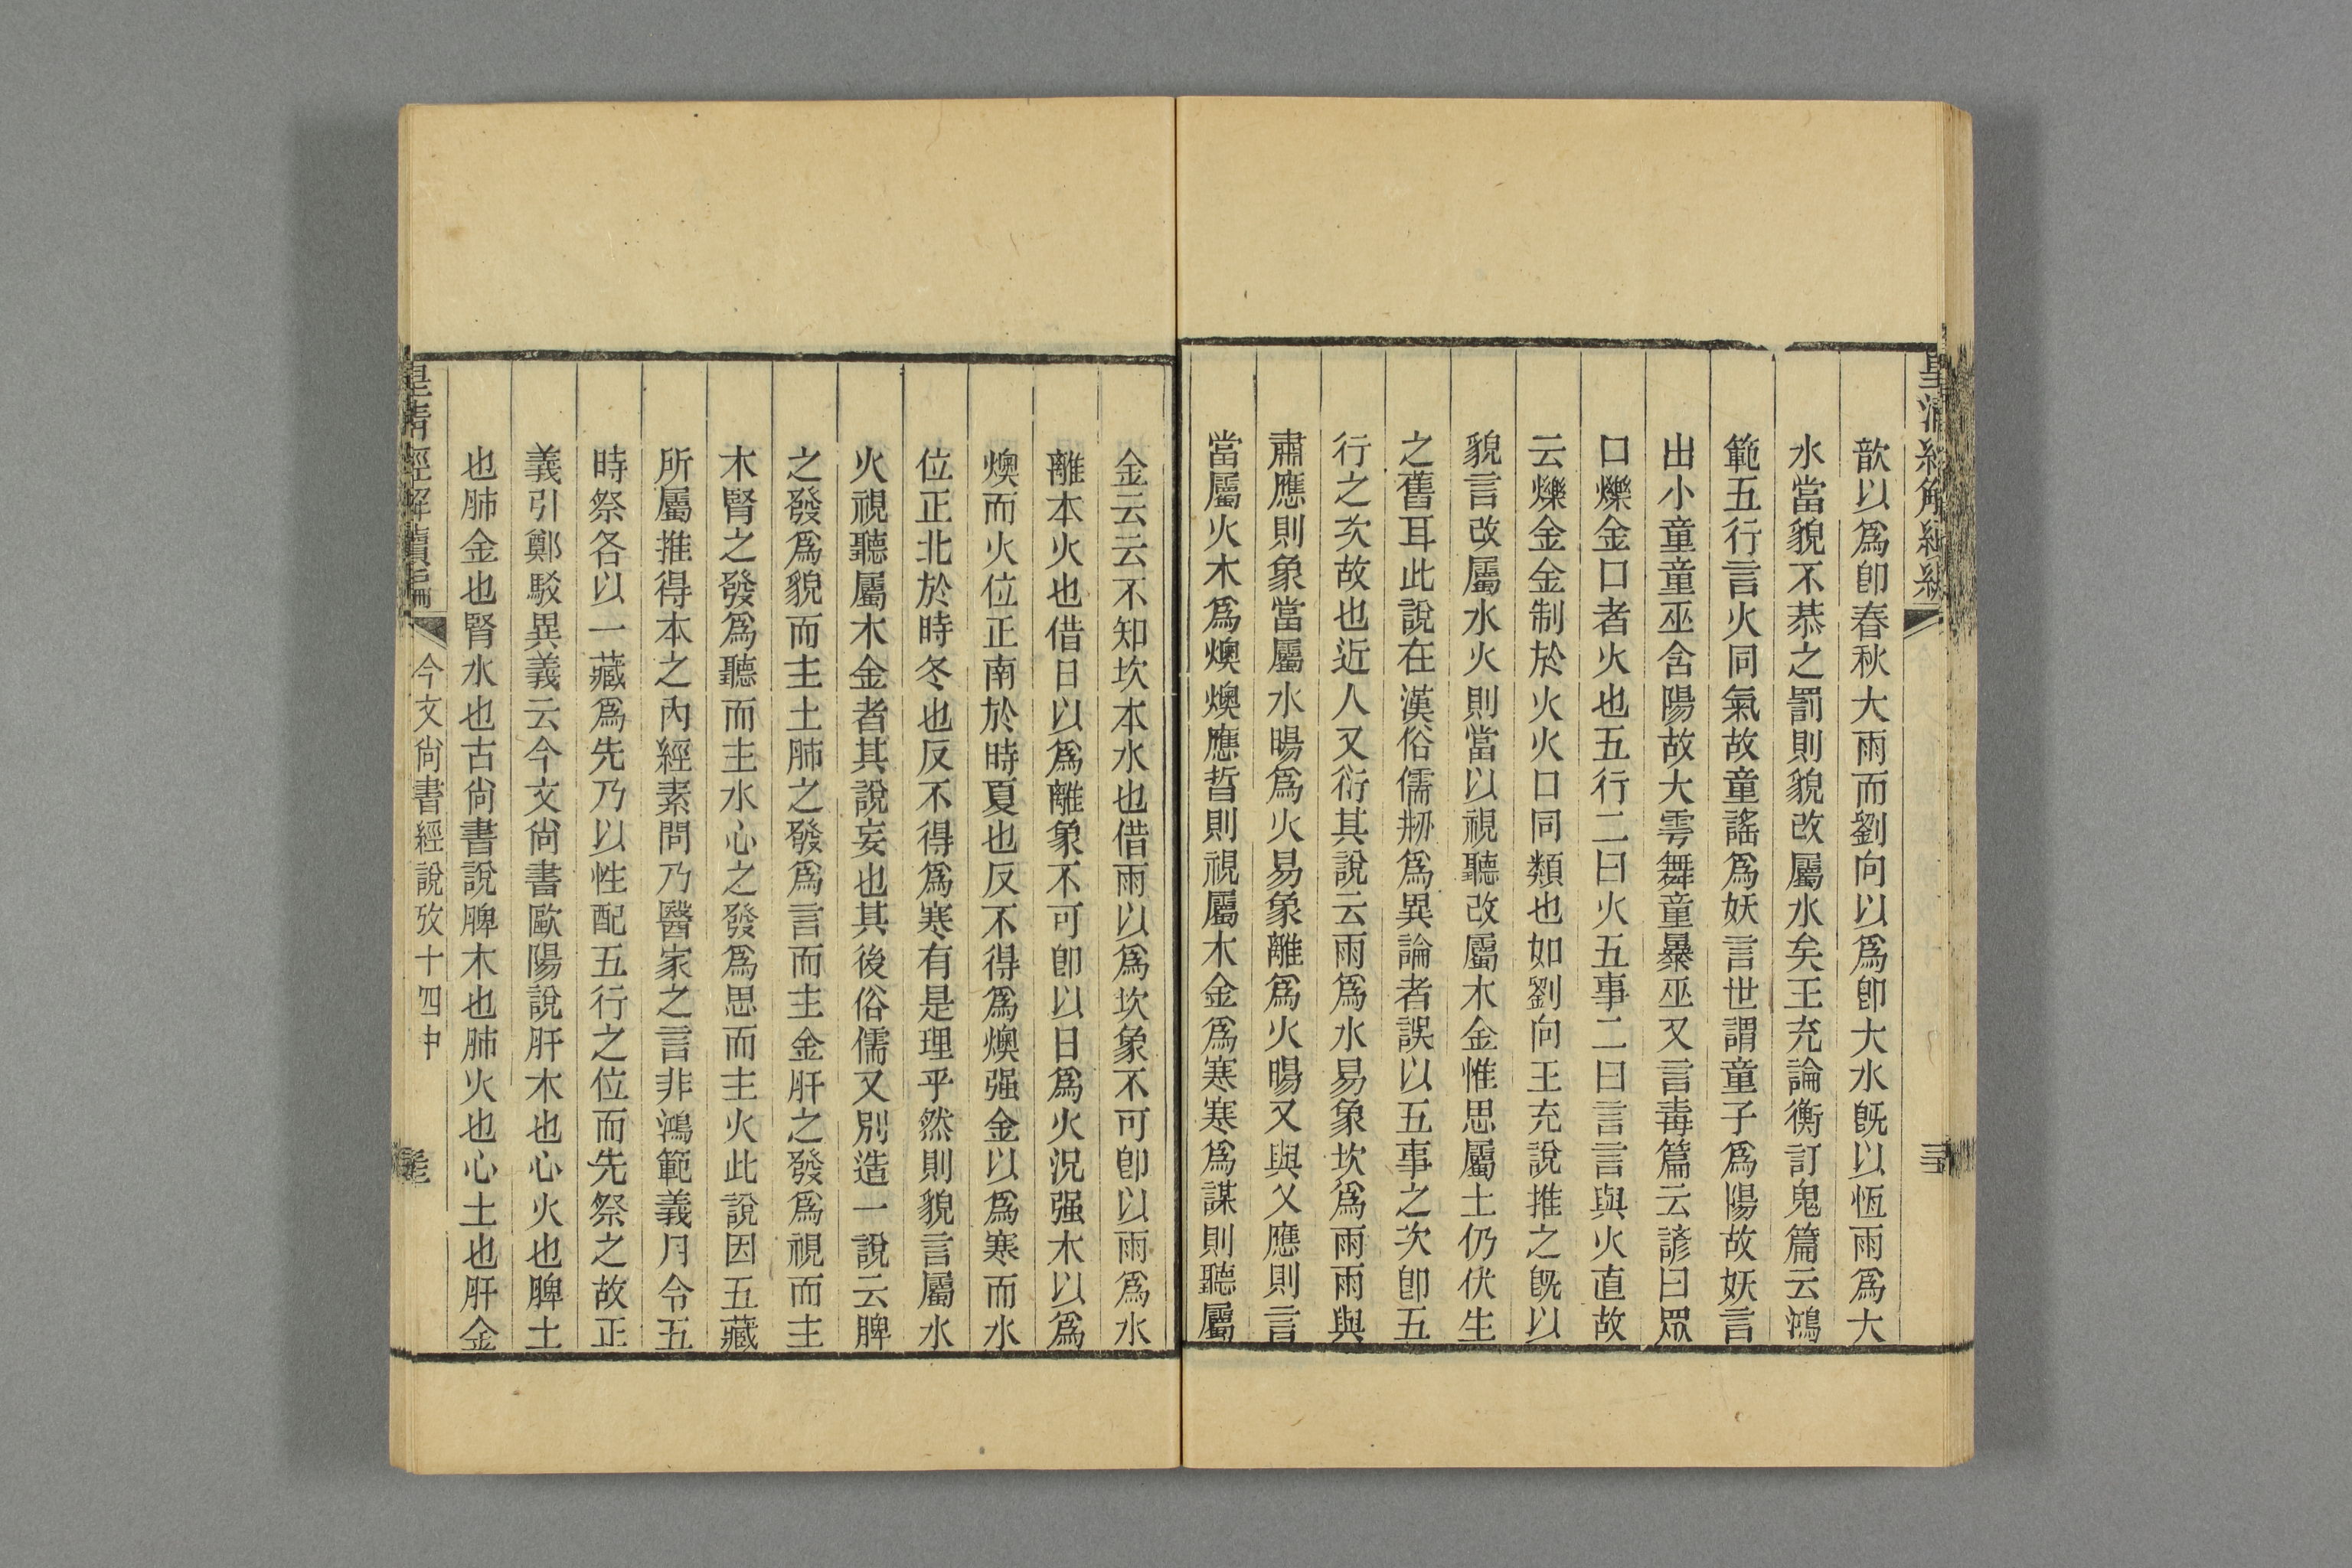 皇清經解續編
歆以爲卽春秋大雨而劉向以爲卽大水旣以恆雨爲大
水當貌不恭之罰則貌改屬水矣王充論衡訂鬼篇云鴻
範五行言火同氣故童謠爲妖言世謂童子爲陽故妖言
出小童童巫含陽故大雩舞童暴巫又言毒篇云諺曰眾
口爍金口者火也五行二曰火五事二曰言言與火直故
云爍金金制於火火口同類也如劉向王充說推之旣以
貌言改屬水火則當以視聽改屬木金惟思屬土仍伏生
之舊耳此說在漢俗儒剏爲異論者誤以五事之次卽五
行之次故也近人又衍其說云雨爲水易象坎爲雨雨與
肅應則象當屬水暘爲火易象離爲火暘又與乂應則言
當屬火木爲燠燠應晢則視屬木金爲寒寒爲謀則聽屬
金云云不知坎本水也借雨以爲坎象不可卽以雨爲水
離本火也借日以爲離象不可卽以日爲火況强木以爲
燠而火位正南於時夏也反不得爲燠强金以爲寒而水
位正北於時冬也反不得爲寒有是理乎然則貌言屬水
火視聽屬木金者其說妄也其後俗儒又別造一說云脾
之發爲貌而主土肺之發爲言而主金肝之發爲視而主
木腎之發爲聽而主水心之發爲思而主火此說因五藏
所屬推得本之內經素問乃醫家之言非鴻範義月令五
時祭各以一藏爲先乃以性配五行之位而先祭之故正
義引鄭駁異義云今文尙書歐陽說肝木也心火也脾土
也肺金也腎水也古尙書說脾木也肺火也心土也肝金
皇清經解續編
今文尙書經說攷十四中